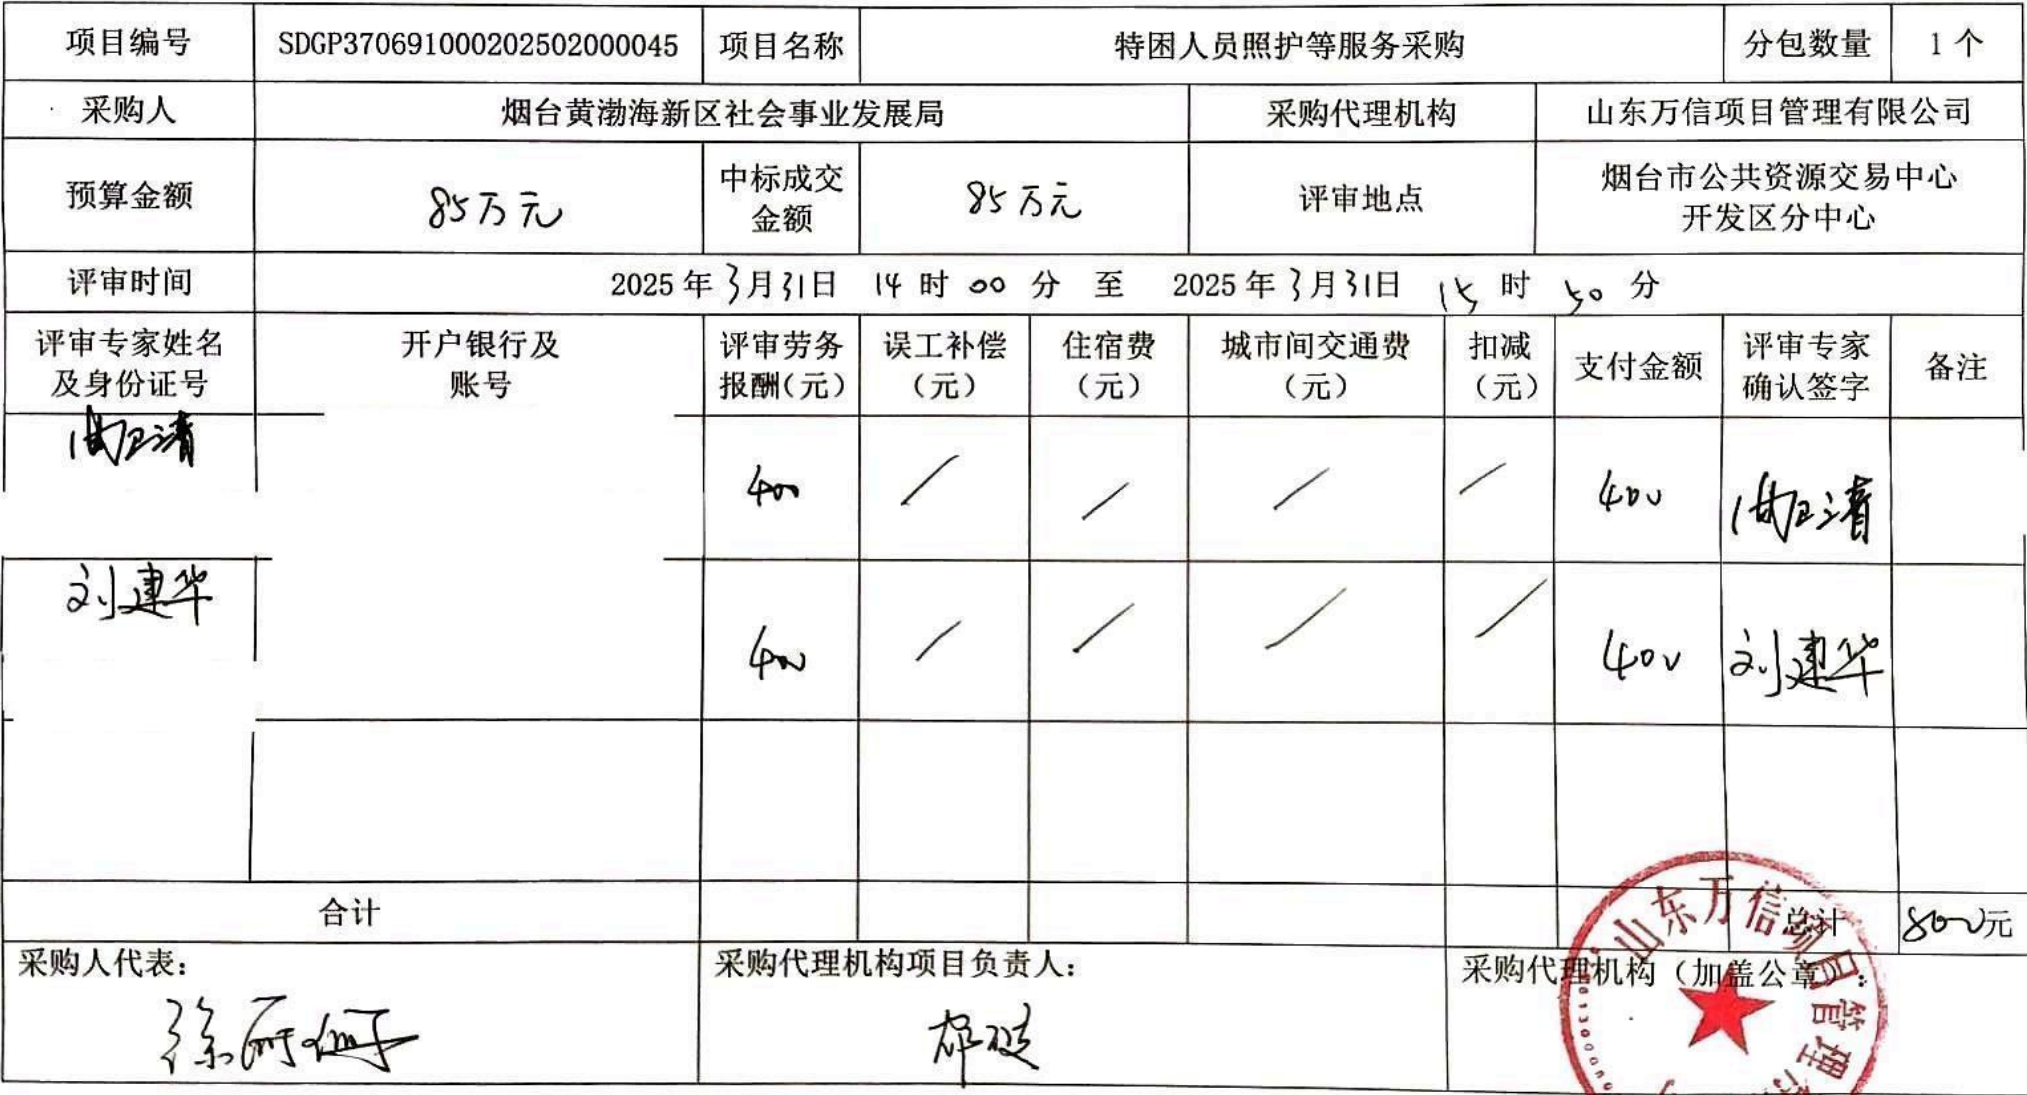 项目编号 SDGP370691000202502000045 项目名称 特困人员照护等服务采购 分包数量 1 个
采购人 烟台黄渤海新区社会事业发展局 采购代理机构 山东万信项目管理有限公司
预算金额 85万元 中标成交金额 85万元 评审地点 烟台市公共资源交易中心开发区分中心
评审时间 2025年3月31日 14时00分 至 2025年3月31日 15时50分
评审专家姓名及身份证号 开户银行及账号 评审劳务报酬(元) 误工补偿(元) 住宿费(元) 城市间交通费(元) 扣减(元) 支付金额 评审专家确认签字 备注
400 / / / / 400
刘建华 400 / / / / 400 刘建华
合计 总计 800元
采购人代表: 采购代理机构项目负责人: 采购代理机构(加盖公章):
山东万信项目管理